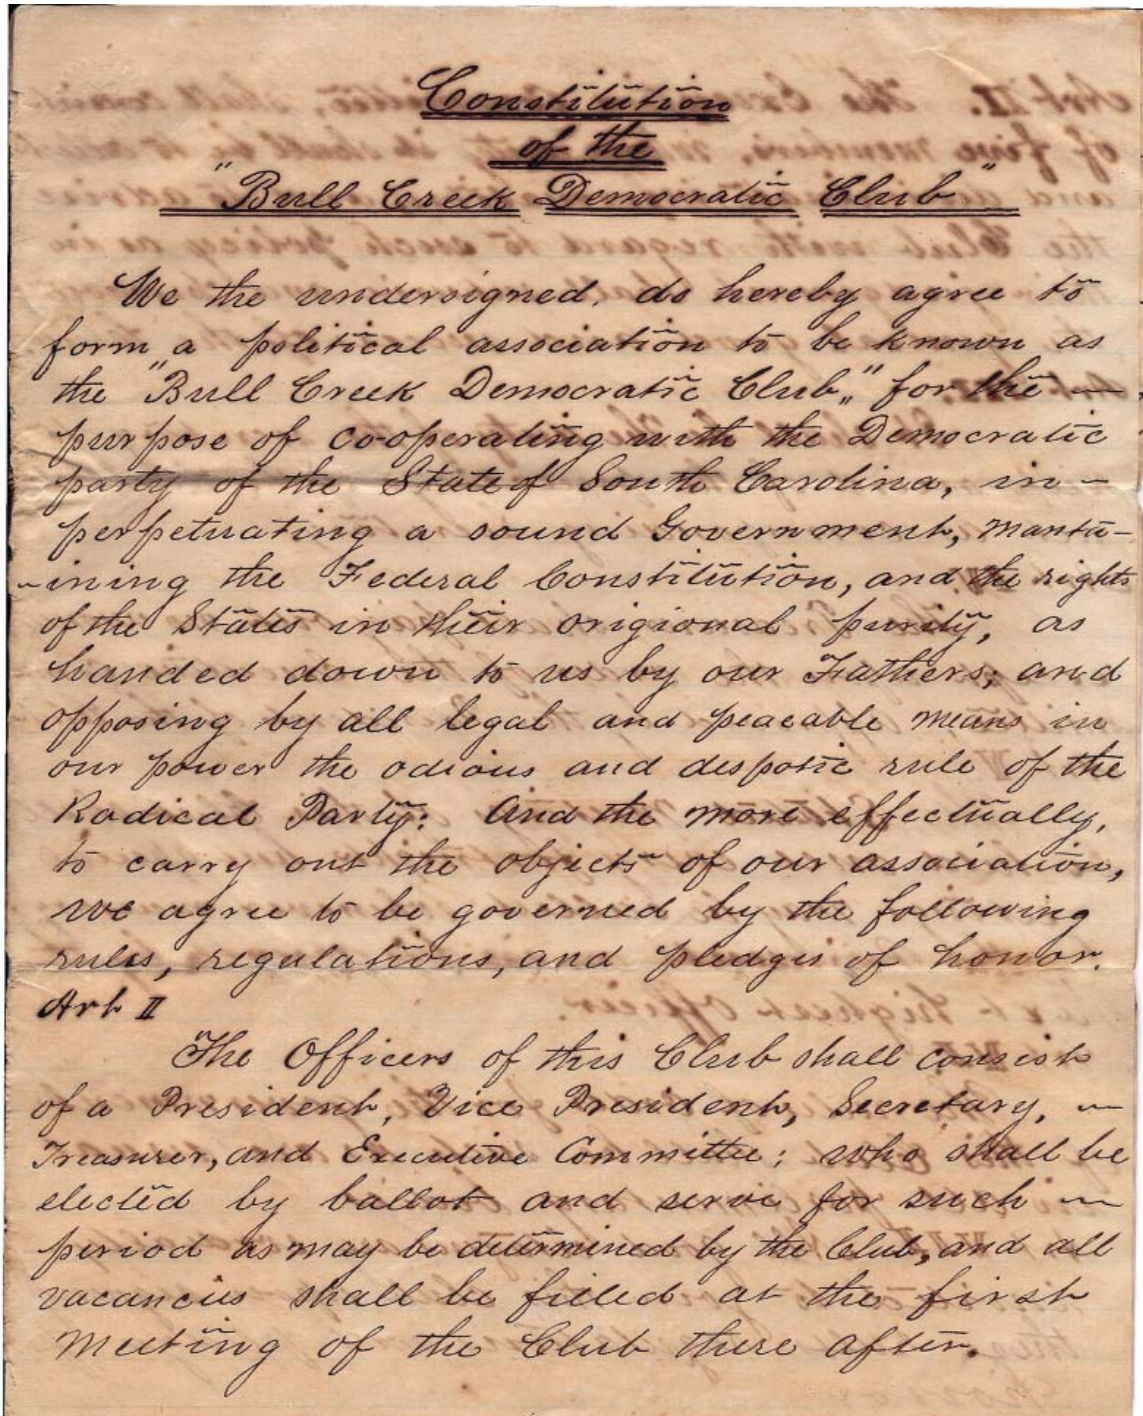 Constitution
of the
"Bull Creek Democratic Club"
We the undersigned, do hereby agree to
form a political association to be known as
the "Bull Creek Democratic Club," for the —
purpose of co-operating with the Democratic
party of the State of South Carolina, in -
perpetuating a sound Government, manta-
-ining the Federal Constitution, and the rights
of the States in their origional purity, as
handed down to us by our Fathers; and
opposing by all legal and peacable means in
our power the odious and despotic rule of the
Radical Party: And the more effectually,
to carry out the objects of our association,
we agree to be governed by the following
rules, regulations, and pledges of honor.
Art II
The Officers of this Club shall consist
of a President, Vice President, Secretary, —
Treasurer, and Executive Committee; who shall be
elected by ballot and serve for such —
period as may be determined by the Club, and all
vacancies shall be filled at the first
meeting of the Club there after.